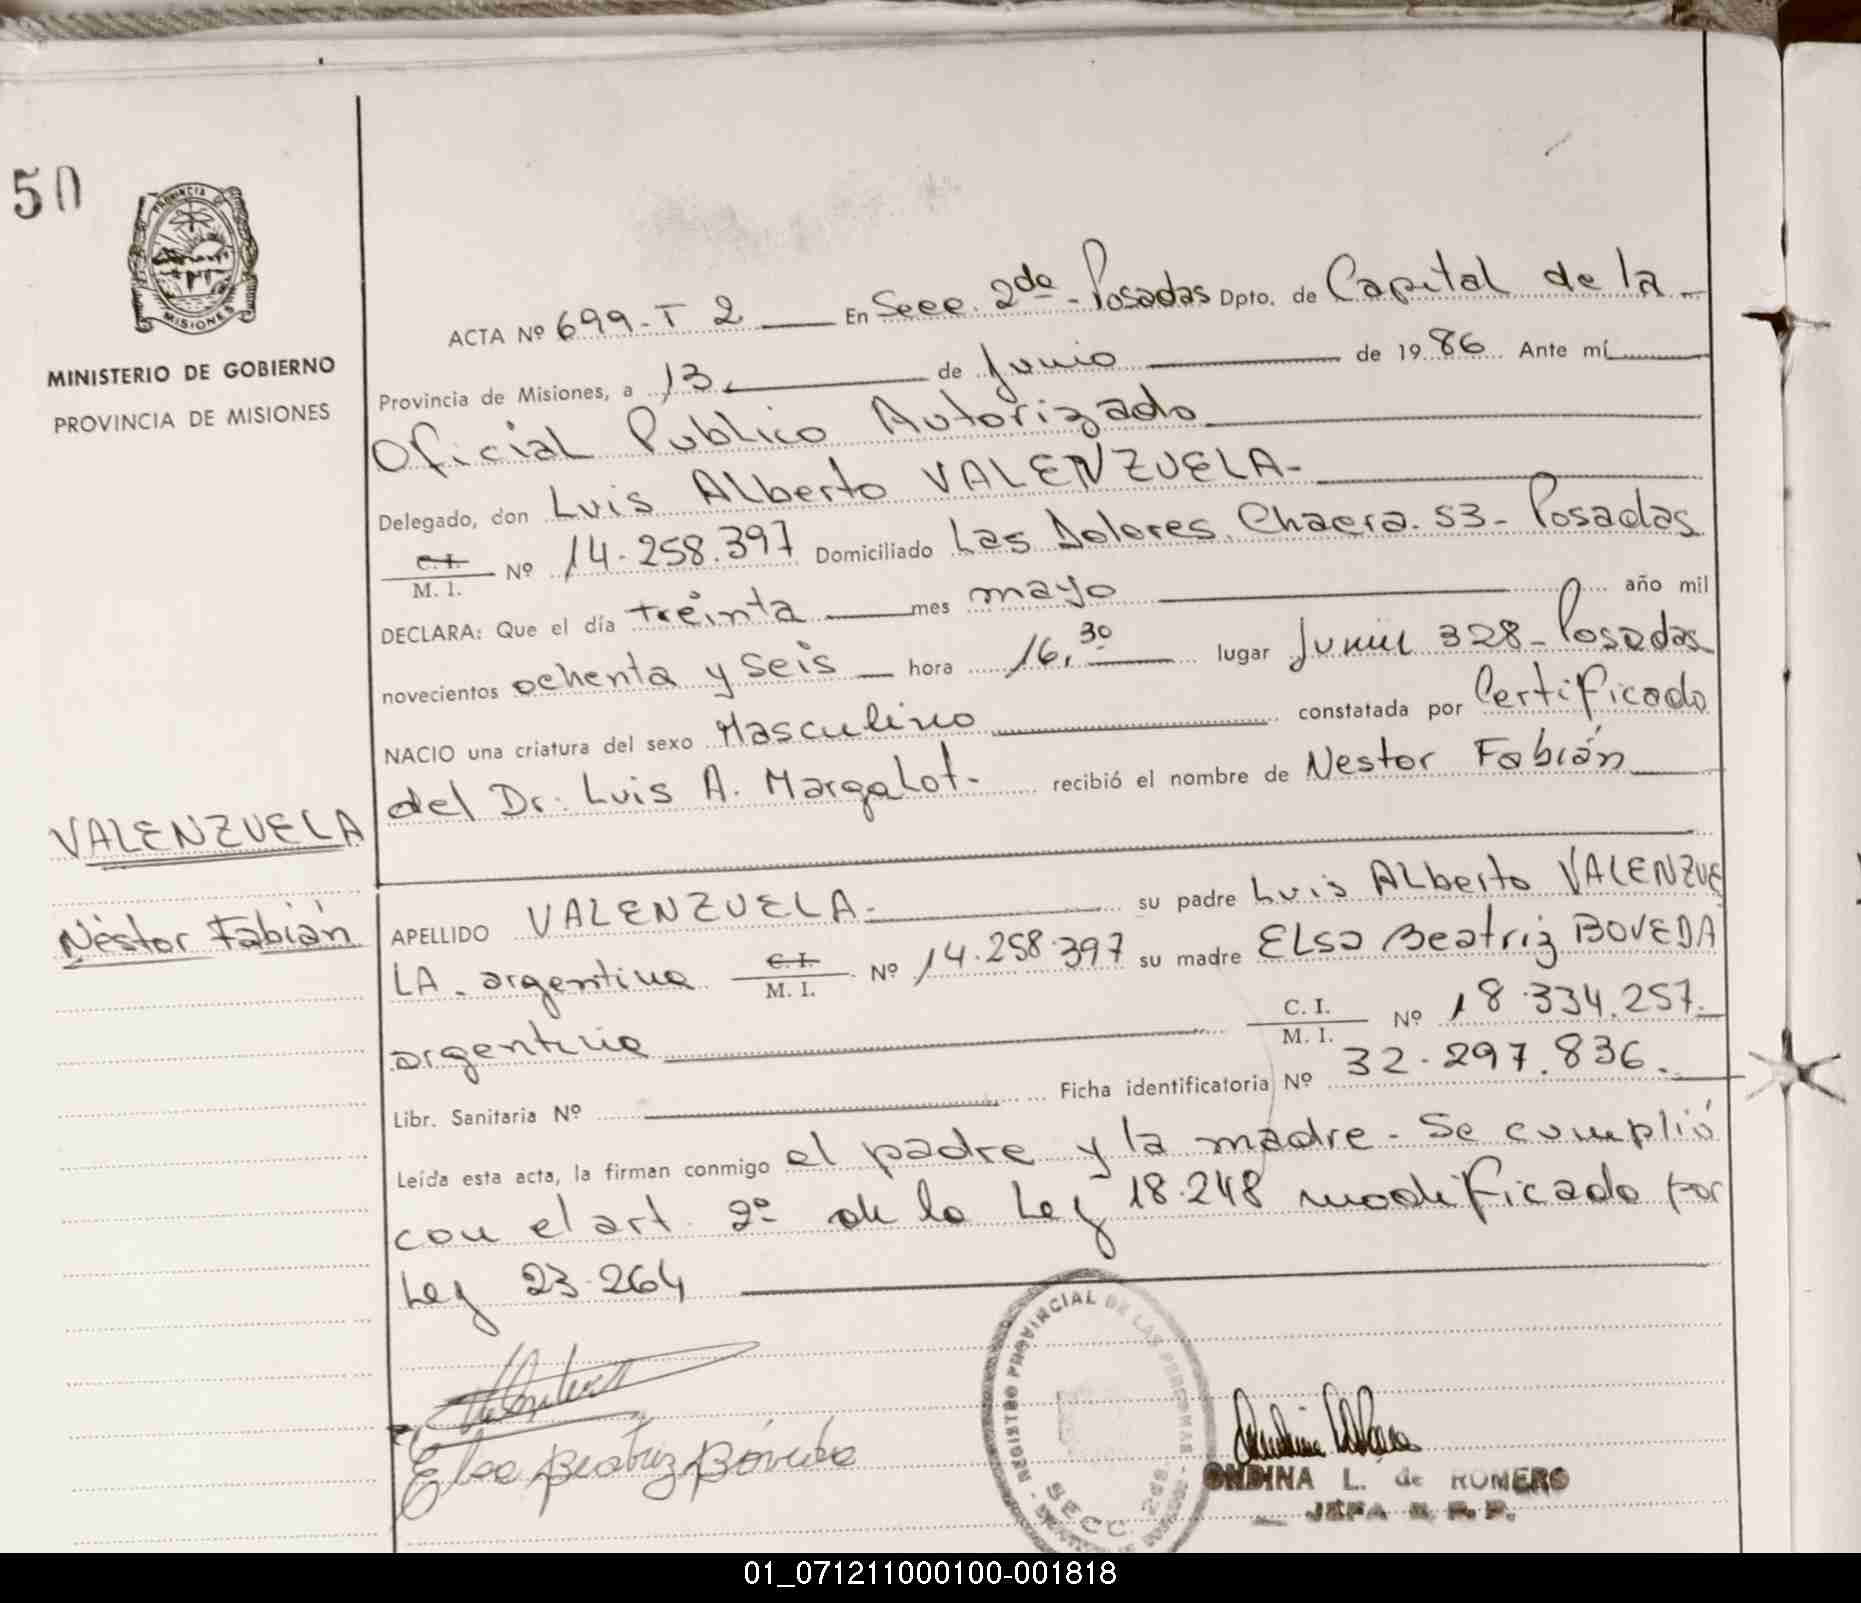 50
PROVINCIA DE
MISIONES
MINISTERIO DE GOBIERNO
PROVINCIA DE MISIONES
ACTA Nº 699-T 2 En Secc. 2da - Posadas Dpto. de Capital de la
Provincia de Misiones, a 13 de Junio de 1986 Ante mí
Oficial Publico Autorizado
Delegado, don Luis Alberto VALENZUELA-
C. I.
M. I. Nº 14.258.397 Domiciliado Las Dolores, Chacra. 53- Posadas
DECLARA: Que el día treinta mes mayo año mil
novecientos ochenta y seis hora 16,30 lugar Junin 328- Posadas
NACIO una criatura del sexo Masculino constatada por Certificado
del Dr. Luis A. Margalot- recibió el nombre de Nestor Fabián
VALENZUELA
Néstor Fabián
APELLIDO VALENZUELA- su padre Luis Alberto VALENZUE
LA - argentino C. I.
M. I. Nº 14.258.397 su madre Elsa Beatriz BOVEDA
argentina C. I.
M. I. Nº 18.334.257.
Libr. Sanitaria Nº Ficha identificatoria Nº 32.297.836.
Leída esta acta, la firman conmigo el padre y la madre - Se cumplió
con el art. 2º de la Ley 18.248 modificado por
Ley 23.264
Elsa Beatriz Bóveda
REGISTRO PROVINCIAL DE LAS PERSONAS
SECC. 2da
ONDINA L. de ROMERO
JEFA
01_071211000100-001818